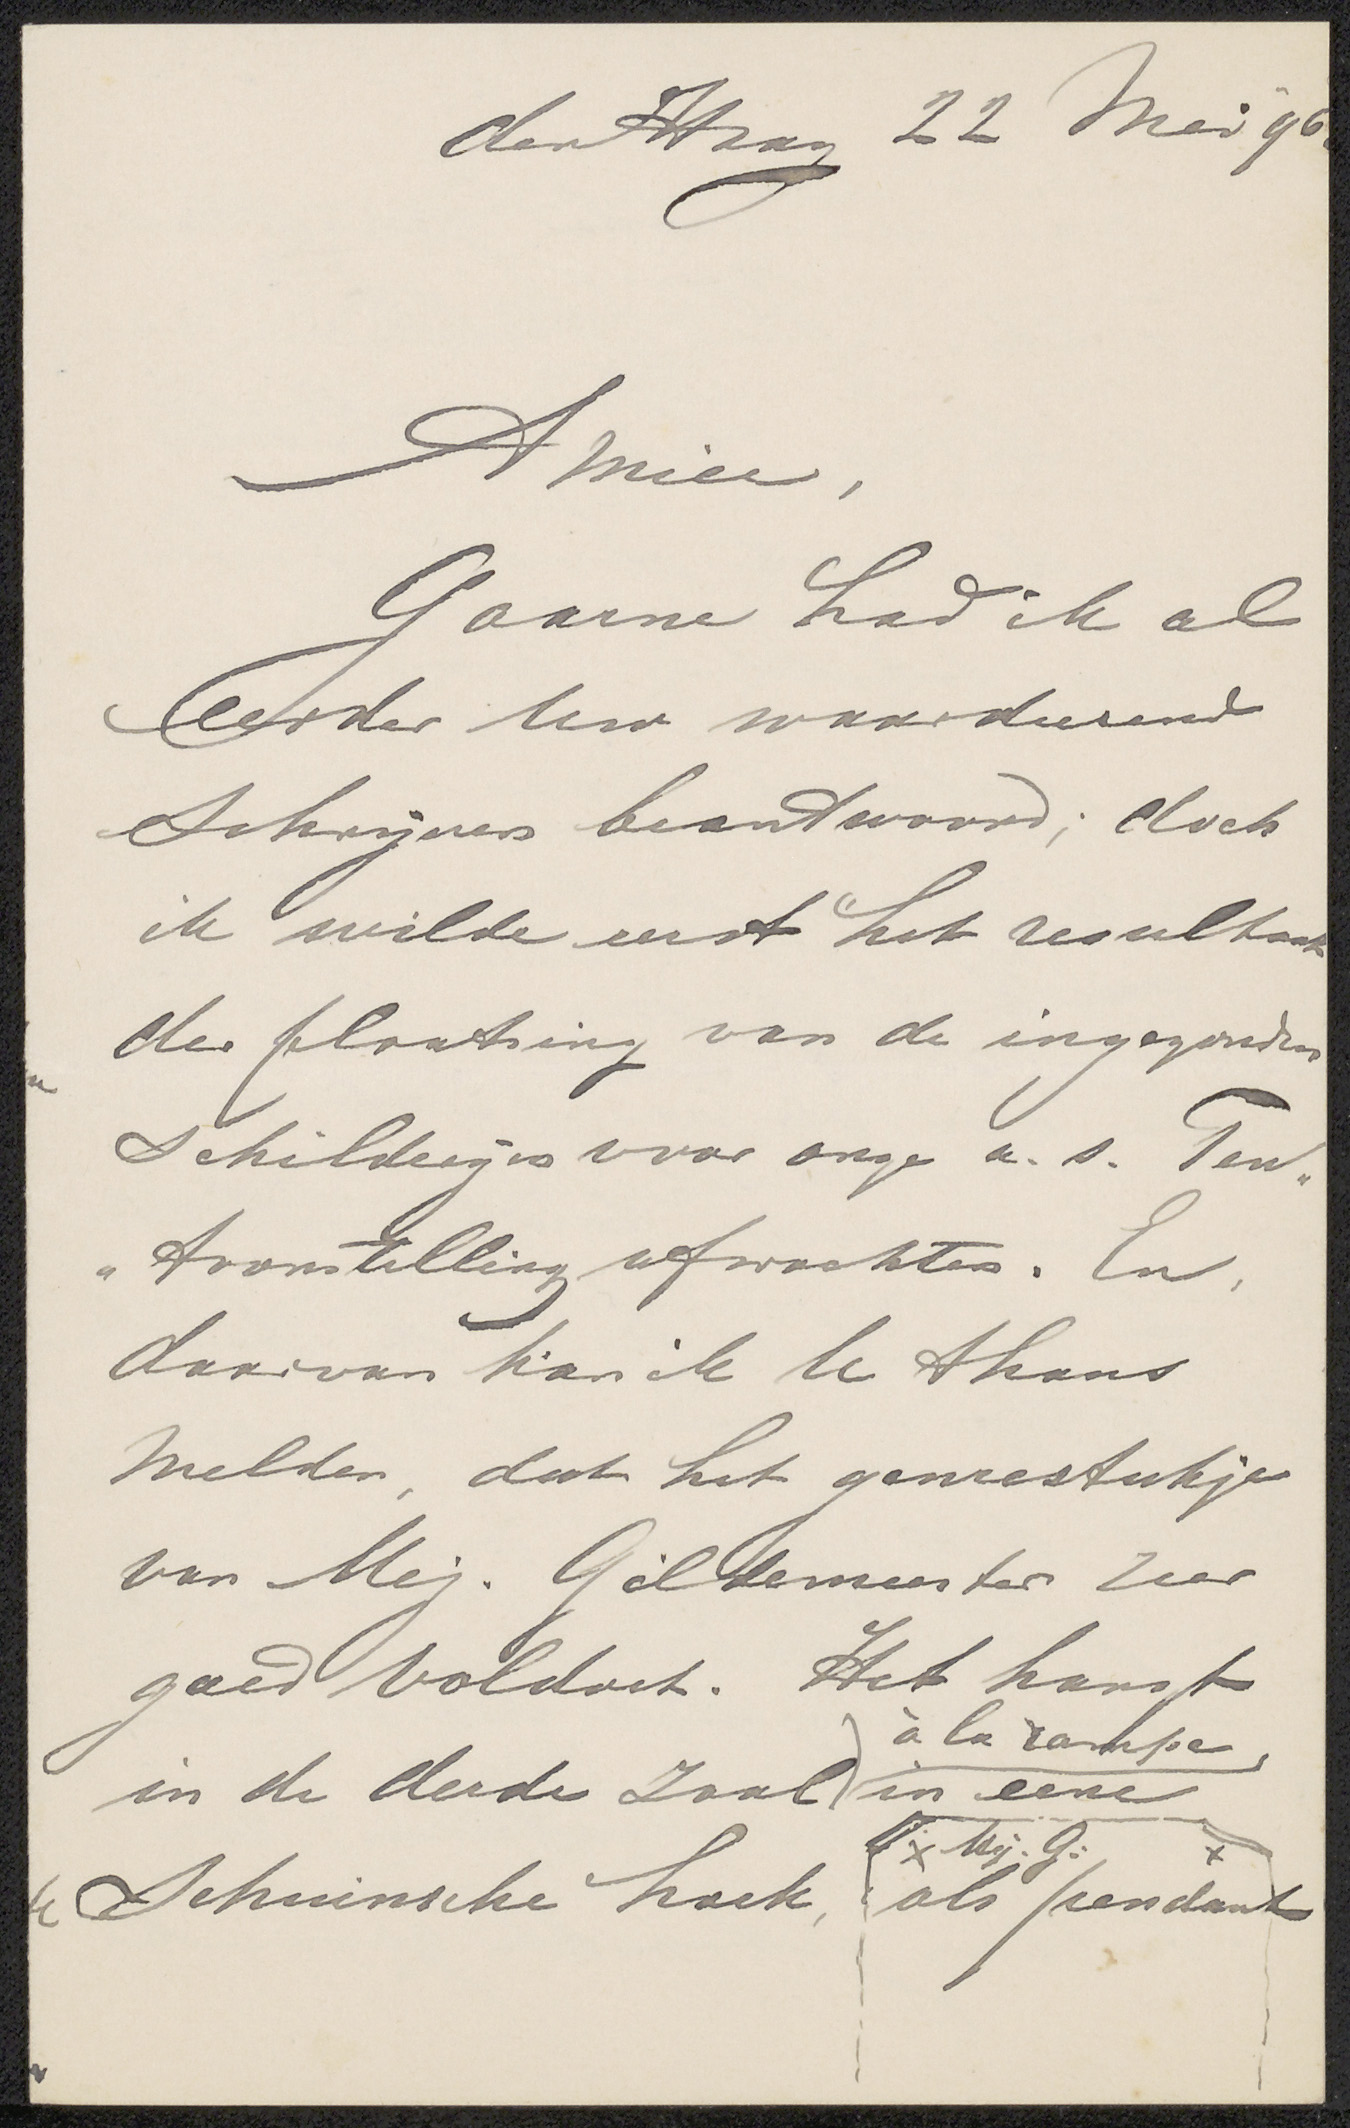 den Haag 22 Mei 96.
Amice,
Gaarne had ik al
eerder Uw waardeerend
Schrijven beantwoord; doch
ik wilde eerst het resultaat
der plaatsing van de ingezonden
Schilderijen voor onze a. s. Ten„
„toonstelling afwachten. En,
daarvan kan ik U thans
melden, dat het genrestukje
van Mej. Gildemeester zeer
goed voldoet. Het hangt
à la rampe,
in de derde zaal in eene
x Mej. G: x
Schuinsche hoek, als pendant